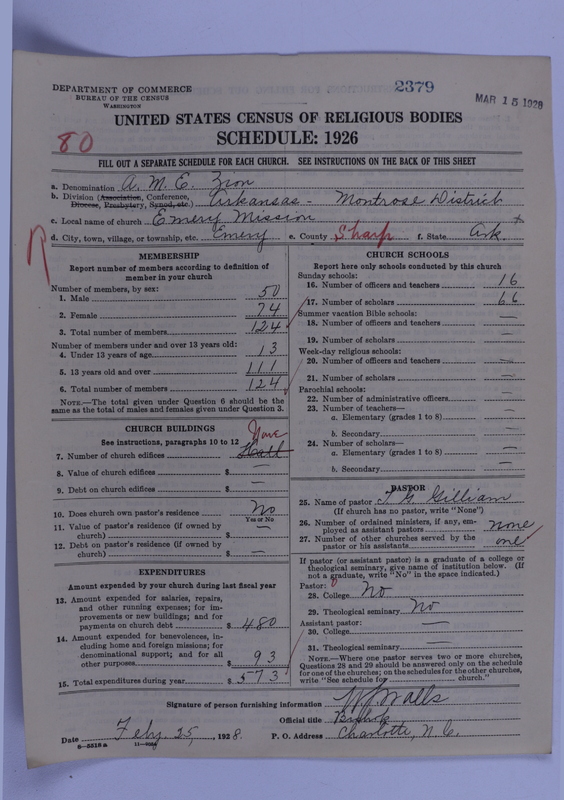 DEPARTMENT OF COMMERCE
BUREAU OF THE CENSUS
WASHINGTON
2379
MAR 15 1928
80
UNITED STATES CENSUS OF RELIGIOUS BODIES
SCHEDULE: 1926
FILL OUT A SEPARATE SCHEDULE FOR EACH CHURCH. SEE INSTRUCTIONS ON THE BACK OF THIS SHEET
a. Denomination A. M. E. Zion
b. Division (Association, Conference, Diocese, Presbytery, Synod, etc.) Arkansas - Montrose District
c. Local name of church Emery Mission
d. City, town, village, or township, etc. Emery e. County Sharp f. State Ark.
MEMBERSHIP
Report number of members according to definition of
member in your church
Number of members, by sex:
1. Male 50
2. Female 74
3. Total number of members 124
Number of members under and over 13 years old:
4. Under 13 years of age 13
5. 13 years old and over 111
6. Total number of members 124
NOTE.—The total given under Question 6 should be
same as the total of males and females given under Question 3.
CHURCH BUILDINGS
See instructions, paragraphs 10 to 12
None
7. Number of church edifices Hall
8. Value of church edifices $ —
9. Debt on church edifices $ —
10. Does church own pastor's residence No
Yes or No
11. Value of pastor's residence (if owned by
church) $ —
12. Debt on pastor's residence (if owned by
church) $ —
EXPENDITURES
Amount expended by your church during last fiscal year
13. Amount expended for salaries, repairs,
and other running expenses; for im-
provements or new buildings; and for
payments on church debt $ 480
14. Amount expended for benevolences, in-
cluding home and foreign missions; for
denominational support; and for all
other purposes $ 93
15. Total expenditures during year $ 573
CHURCH SCHOOLS
Report here only schools conducted by this church
Sunday schools:
16. Number of officers and teachers 16
17. Number of scholars 66
Summer vacation Bible schools:
18. Number of officers and teachers —
19. Number of scholars —
Week-day religious schools:
20. Number of officers and teachers —
21. Number of scholars —
Parochial schools:
22. Number of administrative officers —
23. Number of teachers—
a. Elementary (grades 1 to 8) —
b. Secondary —
24. Number of scholars—
a. Elementary (grades 1 to 8) —
b. Secondary —
PASTOR
25. Name of pastor T. G. Gilliam
(If church has no pastor, write "None")
26. Number of ordained ministers, if any, em-
ployed as assistant pastors none
27. Number of other churches served by the
pastor or his assistants one
If pastor (or assistant pastor) is a graduate of a college or
theological seminary, give name of institution below. (If
not a graduate, write "No" in the space indicated.)
Pastor:
28. College No
29. Theological seminary No
Assistant pastor:
30. College —
31. Theological seminary —
NOTE.—Where one pastor serves two or more churches,
Questions 28 and 29 should be answered only on the schedule
for one of the churches; on the schedules for the other churches,
write "See schedule for church."
Signature of person furnishing information W. J. Walls
Official title Bishop
Date Feby. 25, 1928. P. O. Address Charlotte, N. C.
6-5518a 11-9224